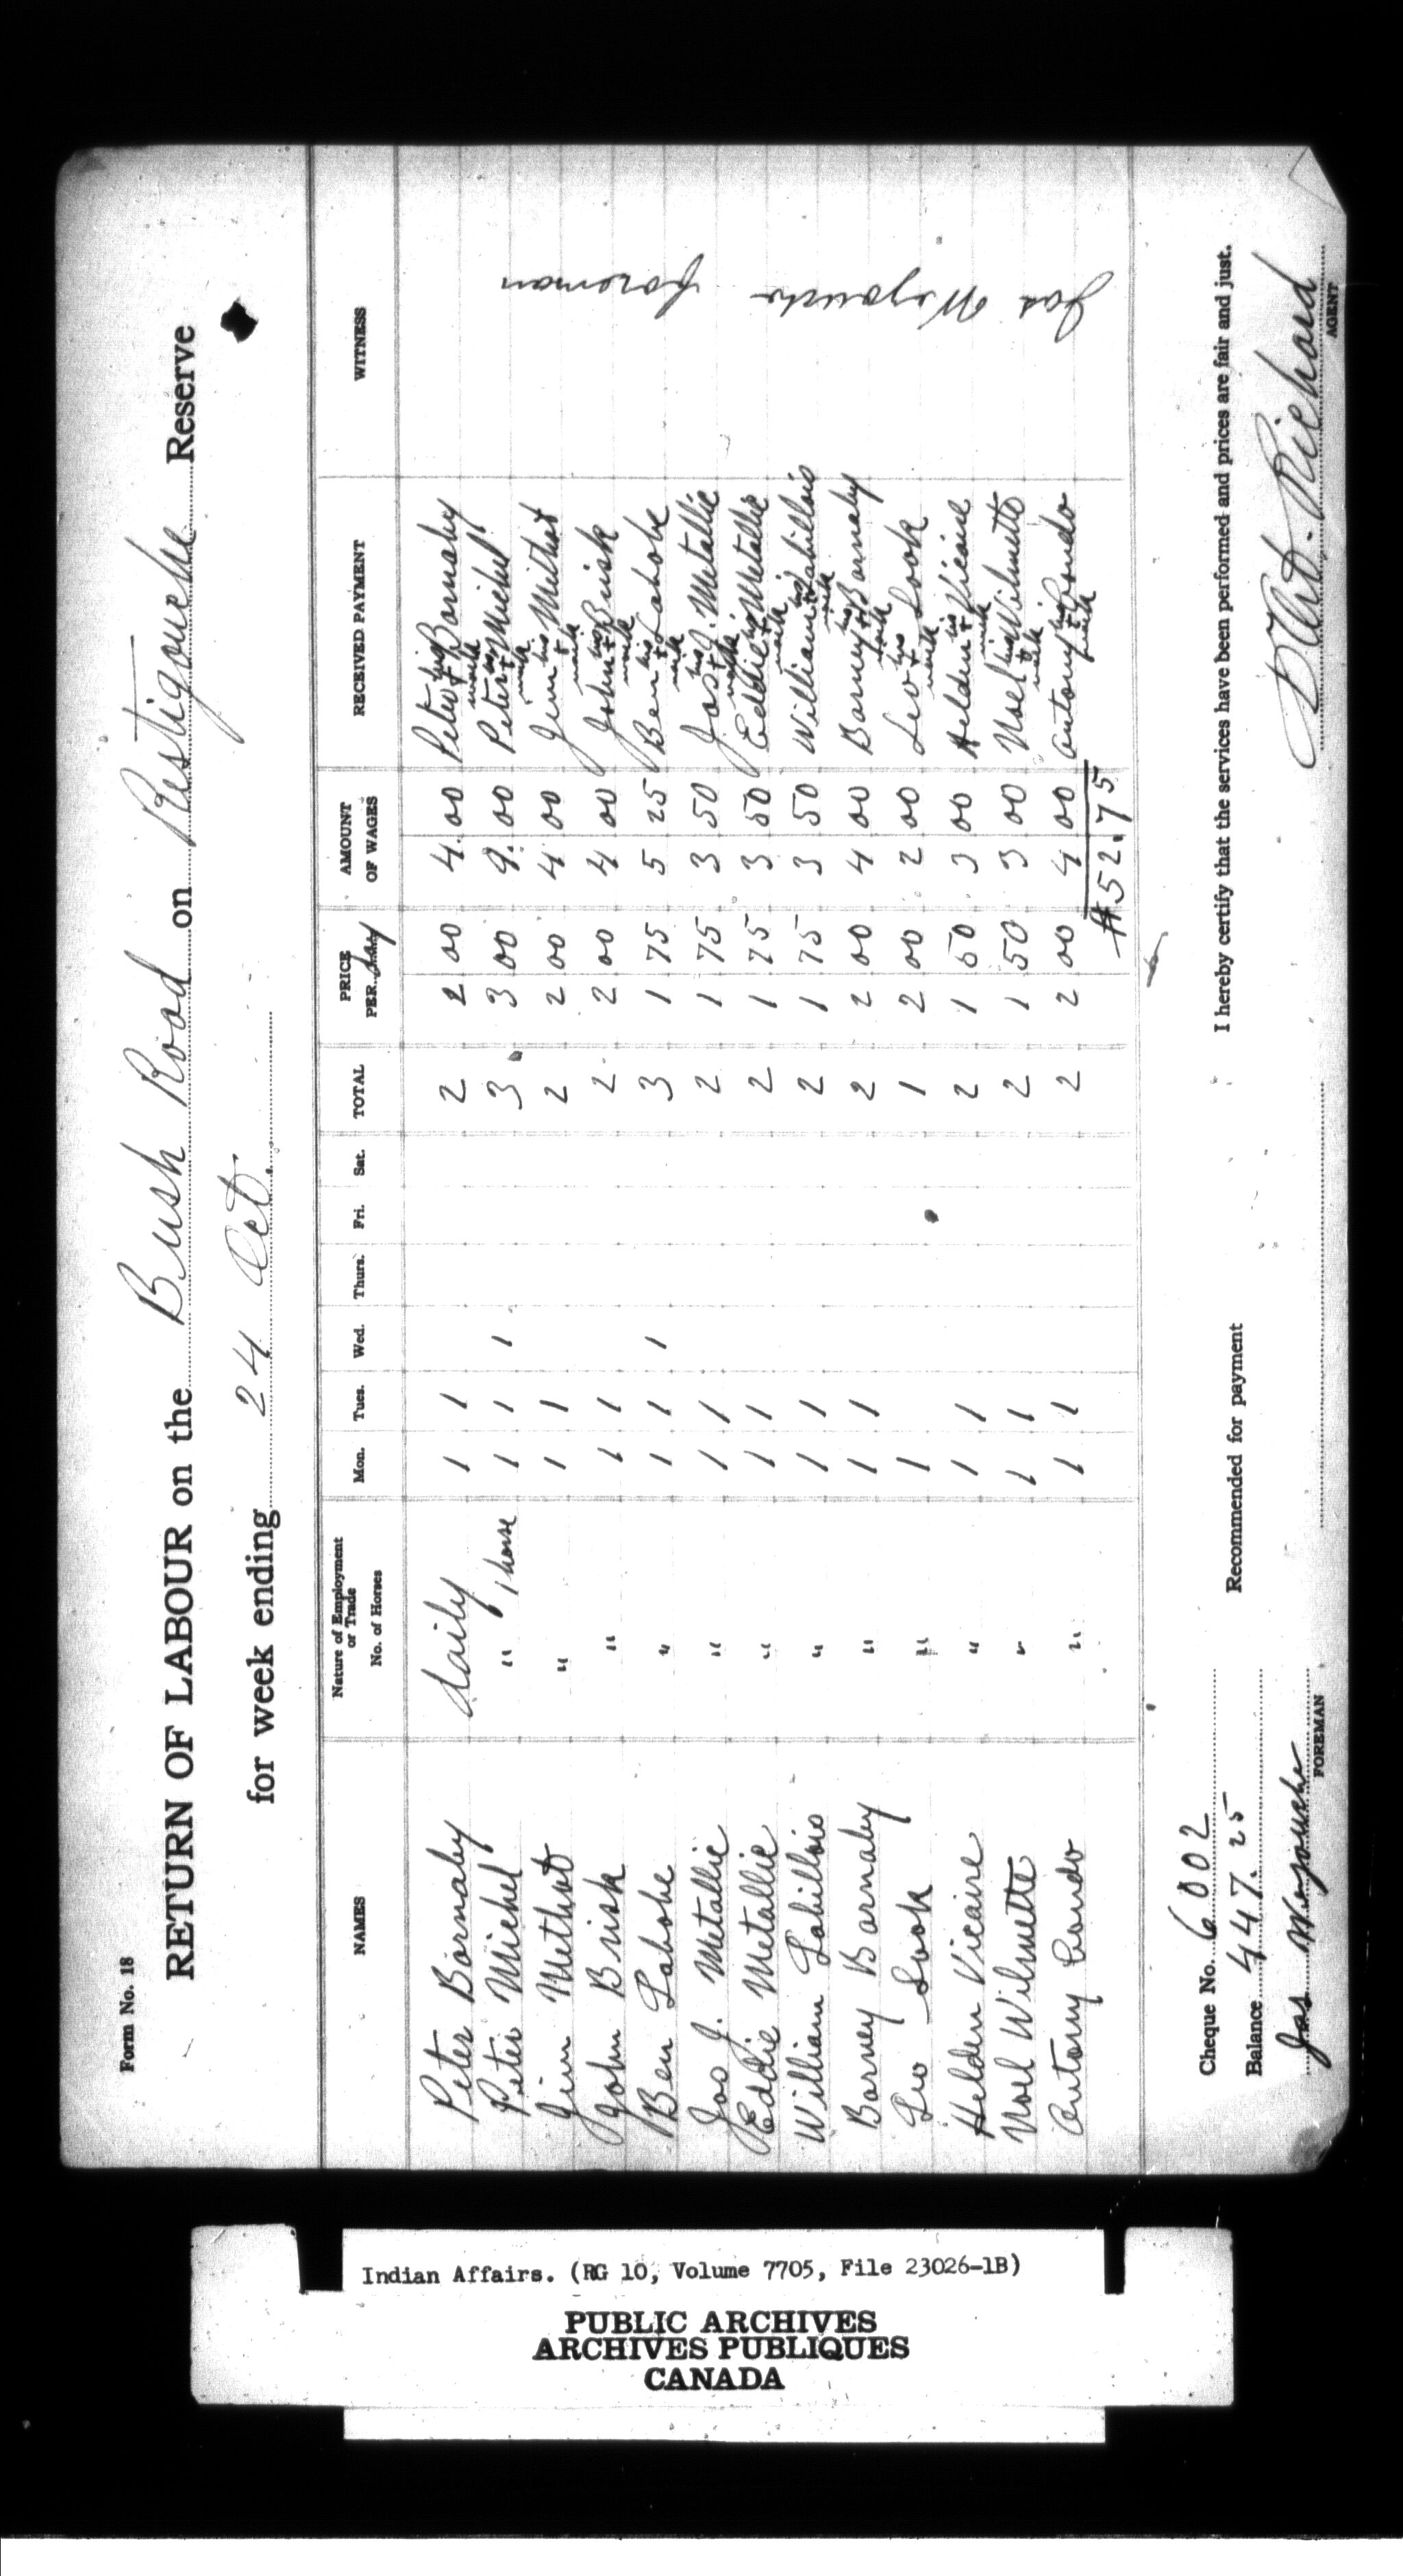 Form No. 18
RETURN OF LABOUR on the Bush Road on Restigouche Reserve
for week ending 24 Oct.
NAMES Nature of Employment or Trade No. of Horses Mon. Tues. Wed. Thurs. Fri. Sat. TOTAL PRICE PER day AMOUNT OF WAGES RECEIVED PAYMENT WITNESS
Peter Barnaby daily 1 1 2 2 00 4.00 Peter his + mark Barnaby
Peter Michel " 1 horse 1 1 1 3 3 00 9.00 Peter his + mark Michel
Jim Methot " 1 1 2 2 00 4 00 Jim his + mark Methot
John Brisk " 1 1 2 2 00 4 00 John his + mark Brisk
Ben Labobe " 1 1 1 3 1 75 5 25 Ben his + mark Labobe
Jos J. Metallic " 1 1 2 1 75 3 50 Jos his + mark J. Metallic
Eddie Metallic " 1 1 2 1 75 3 50 Eddie his + mark Metallic
William Labillois " 1 1 2 1 75 3 50 William his + mark Labillois
Barney Barnaby " 1 1 2 2 00 4 00 Barney his + mark Barnaby
Leo Look " 1 1 2 00 2 00 Leo his + mark Look
Helden Vicaire " 1 1 2 1 50 3 00 Helden his + mark Vicaire
Noel Wilmette " 1 1 2 1 50 3 00 Noel his + mark Wilmette
Antony Condo " 1 1 2 2 00 4 00 Antony his + mark Condo
$52.75
Jas Wejouche foreman
I hereby certify that the services have been performed and prices are fair and just.
Cheque No. 6002
Recommended for payment
Balance 447.25
Jas Wejouche
FOREMAN
Richard
AGENT
Indian Affairs. (RG 10, Volume 7705, File 23026-1B)
PUBLIC ARCHIVES
ARCHIVES PUBLIQUES
CANADA